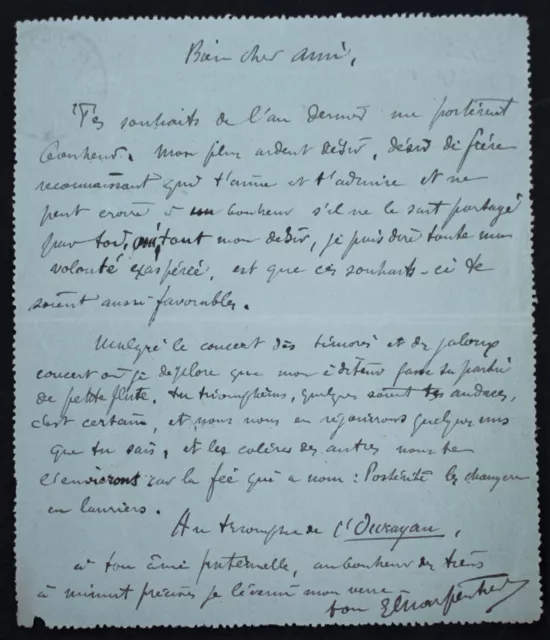 Bien cher ami,
Tes souhaits de l'an dernier me portèrent
bonheur. Mon plus ardent désir, désir de frère
reconnaissant qui t'aime et t'admire et ne
peut croire à un bonheur s'il ne le sait partagé
par toi, tout mon désir, je puis dire toute ma
volonté exaspérée, est que ces souhaits-ci te
soient aussi favorables.
Malgré le concert des timorés et des jaloux
concert où je déplore que mon éditeur fasse sa partie
de petite flûte. tu triompheras, quelques soient tes audaces,
c'est certain, et nous nous en réjouirons quelques uns
que tu sais, et les colères des autres nous te
l'envierons car la fée qui a nom : Postérité les changera
en lauriers.
Au triomphe de l'Ouragan,
à ton âme fraternelle, au bonheur des tiens
à minuit précises je lèverai mon verre
ton GCharpentier